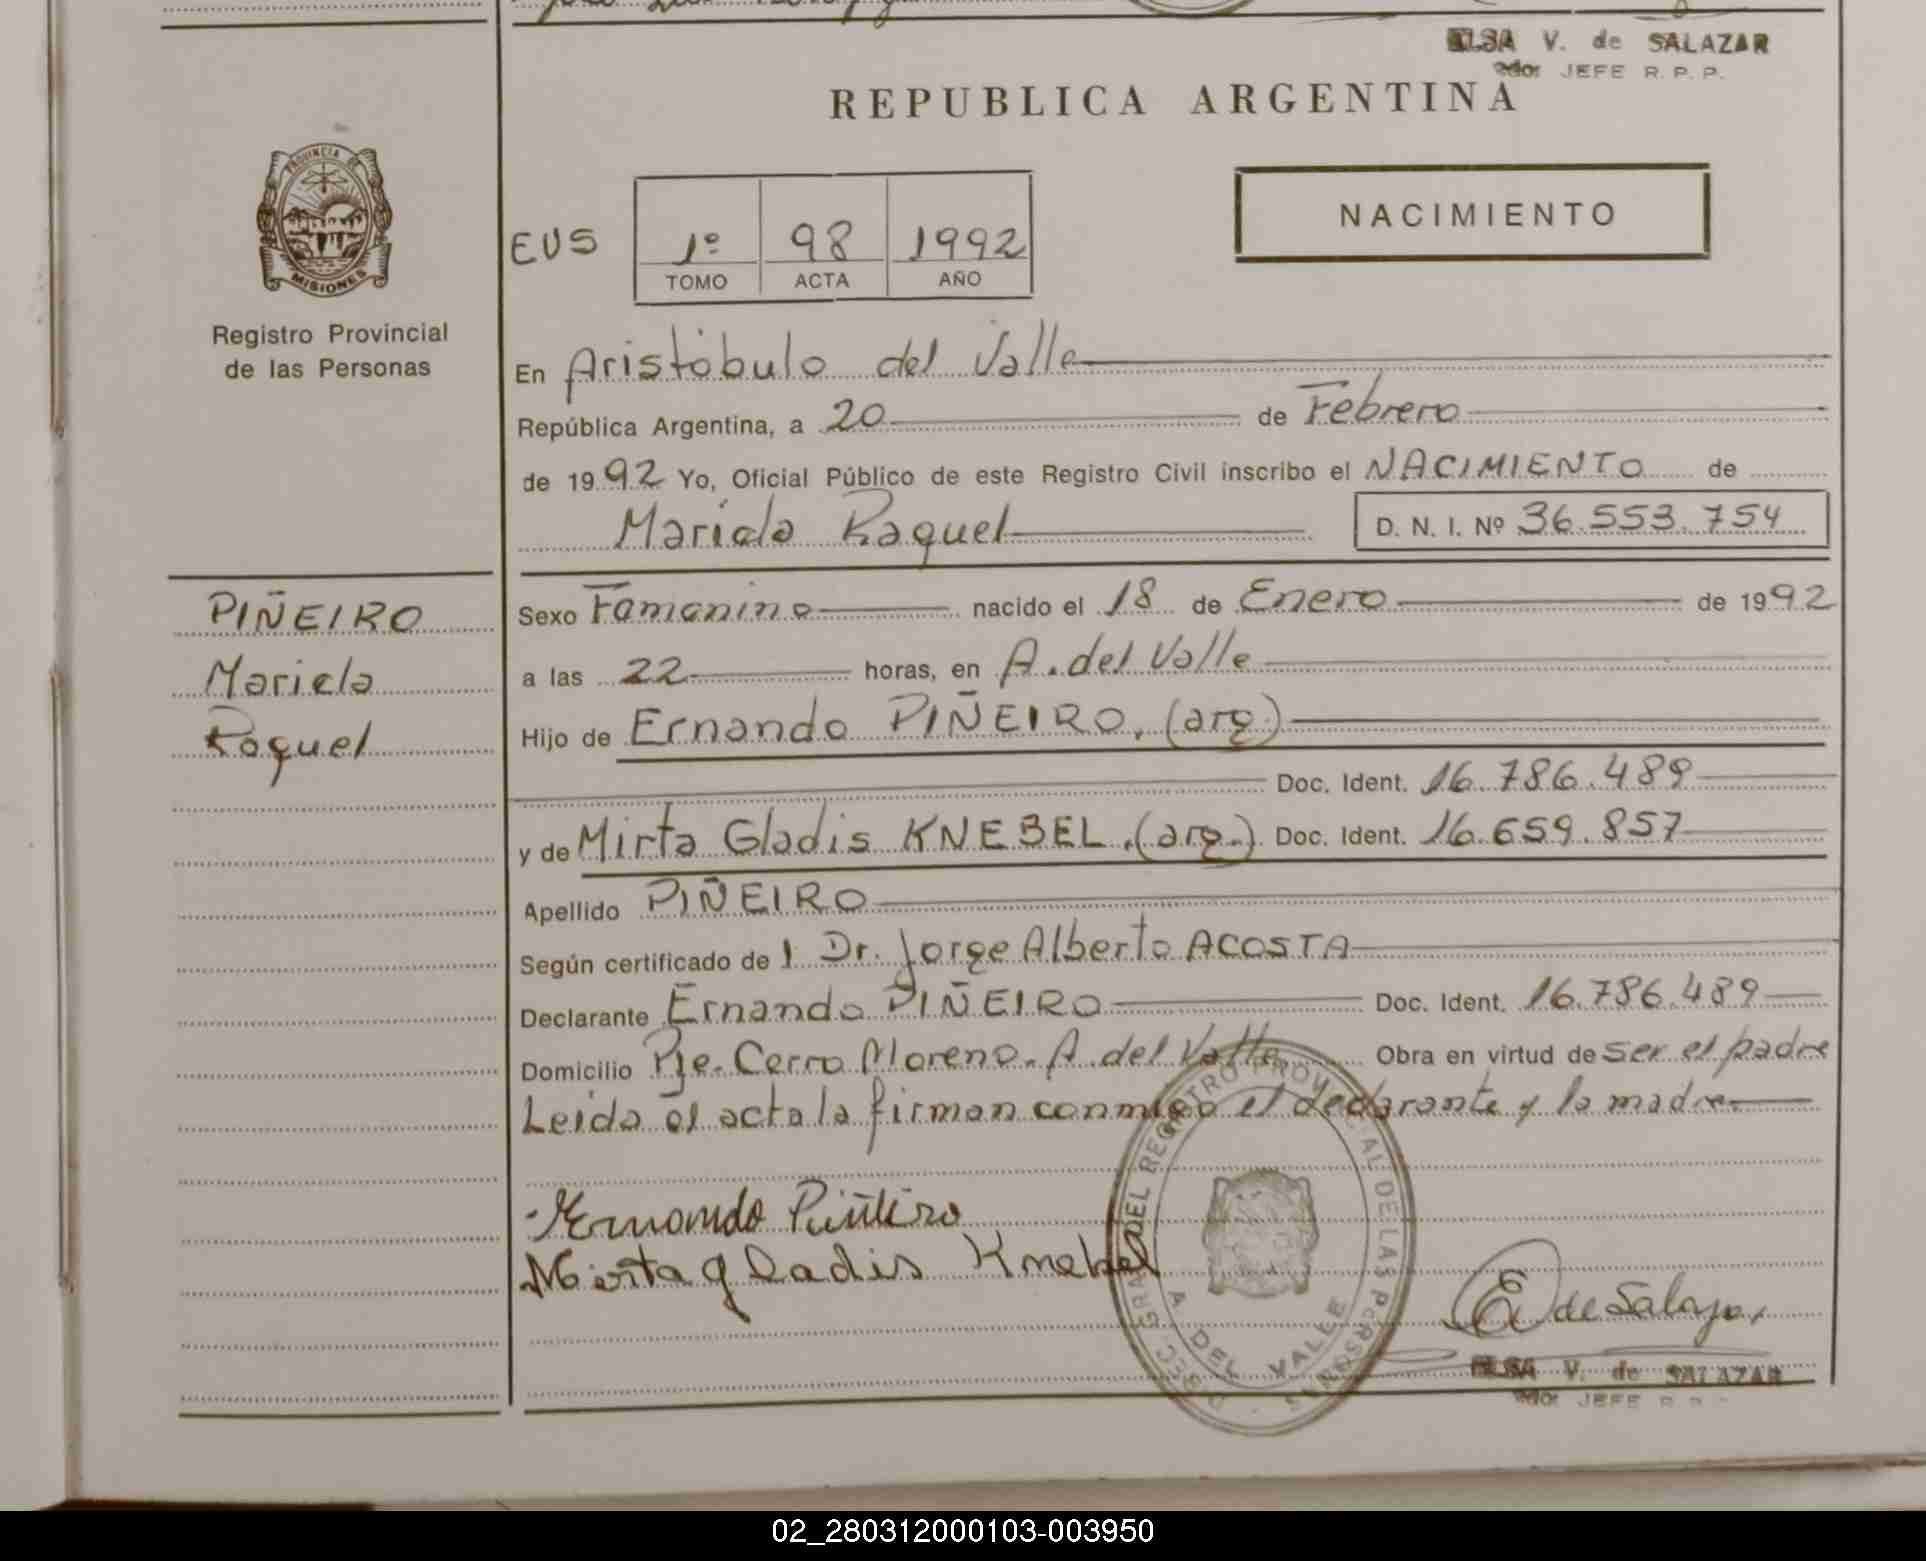 ELSA V. de SALAZAR
JEFE R. P. P.
REPUBLICA ARGENTINA
PROVINCIA DE
MISIONES
Registro Provincial
de las Personas
EVS
1º 98 1992
TOMO ACTA AÑO
NACIMIENTO
En Aristóbulo del Valle
República Argentina, a 20 de Febrero
de 1992 Yo, Oficial Público de este Registro Civil inscribo el NACIMIENTO de
Mariela Raquel D. N. I. Nº 36.553.754
PIÑEIRO
Mariela
Raquel
Sexo Femenino nacido el 18 de Enero de 1992
a las 22 horas, en A. del Valle
Hijo de Ernando PIÑEIRO, (arg.)
Doc. Ident. 16.786.489
y de Mirta Gladis KNEBEL, (arg.) Doc. Ident. 16.659.857
Apellido PIÑEIRO
Según certificado de l Dr. Jorge Alberto ACOSTA
Declarante Ernando PIÑEIRO Doc. Ident. 16.786.489
Domicilio Pje. Cerro Moreno. A. del Valle Obra en virtud de ser el padre
Leida el acta la firman conmigo el declarante y la madre.
Ernando Piñeiro
Mirta Gladis Knebel
DEL REGISTRO PROVINCIAL DE LAS PERSONAS
A. DEL VALLE
E de Salazar
ELSA V. de SALAZAR
JEFE R. P.
02_280312000103-003950